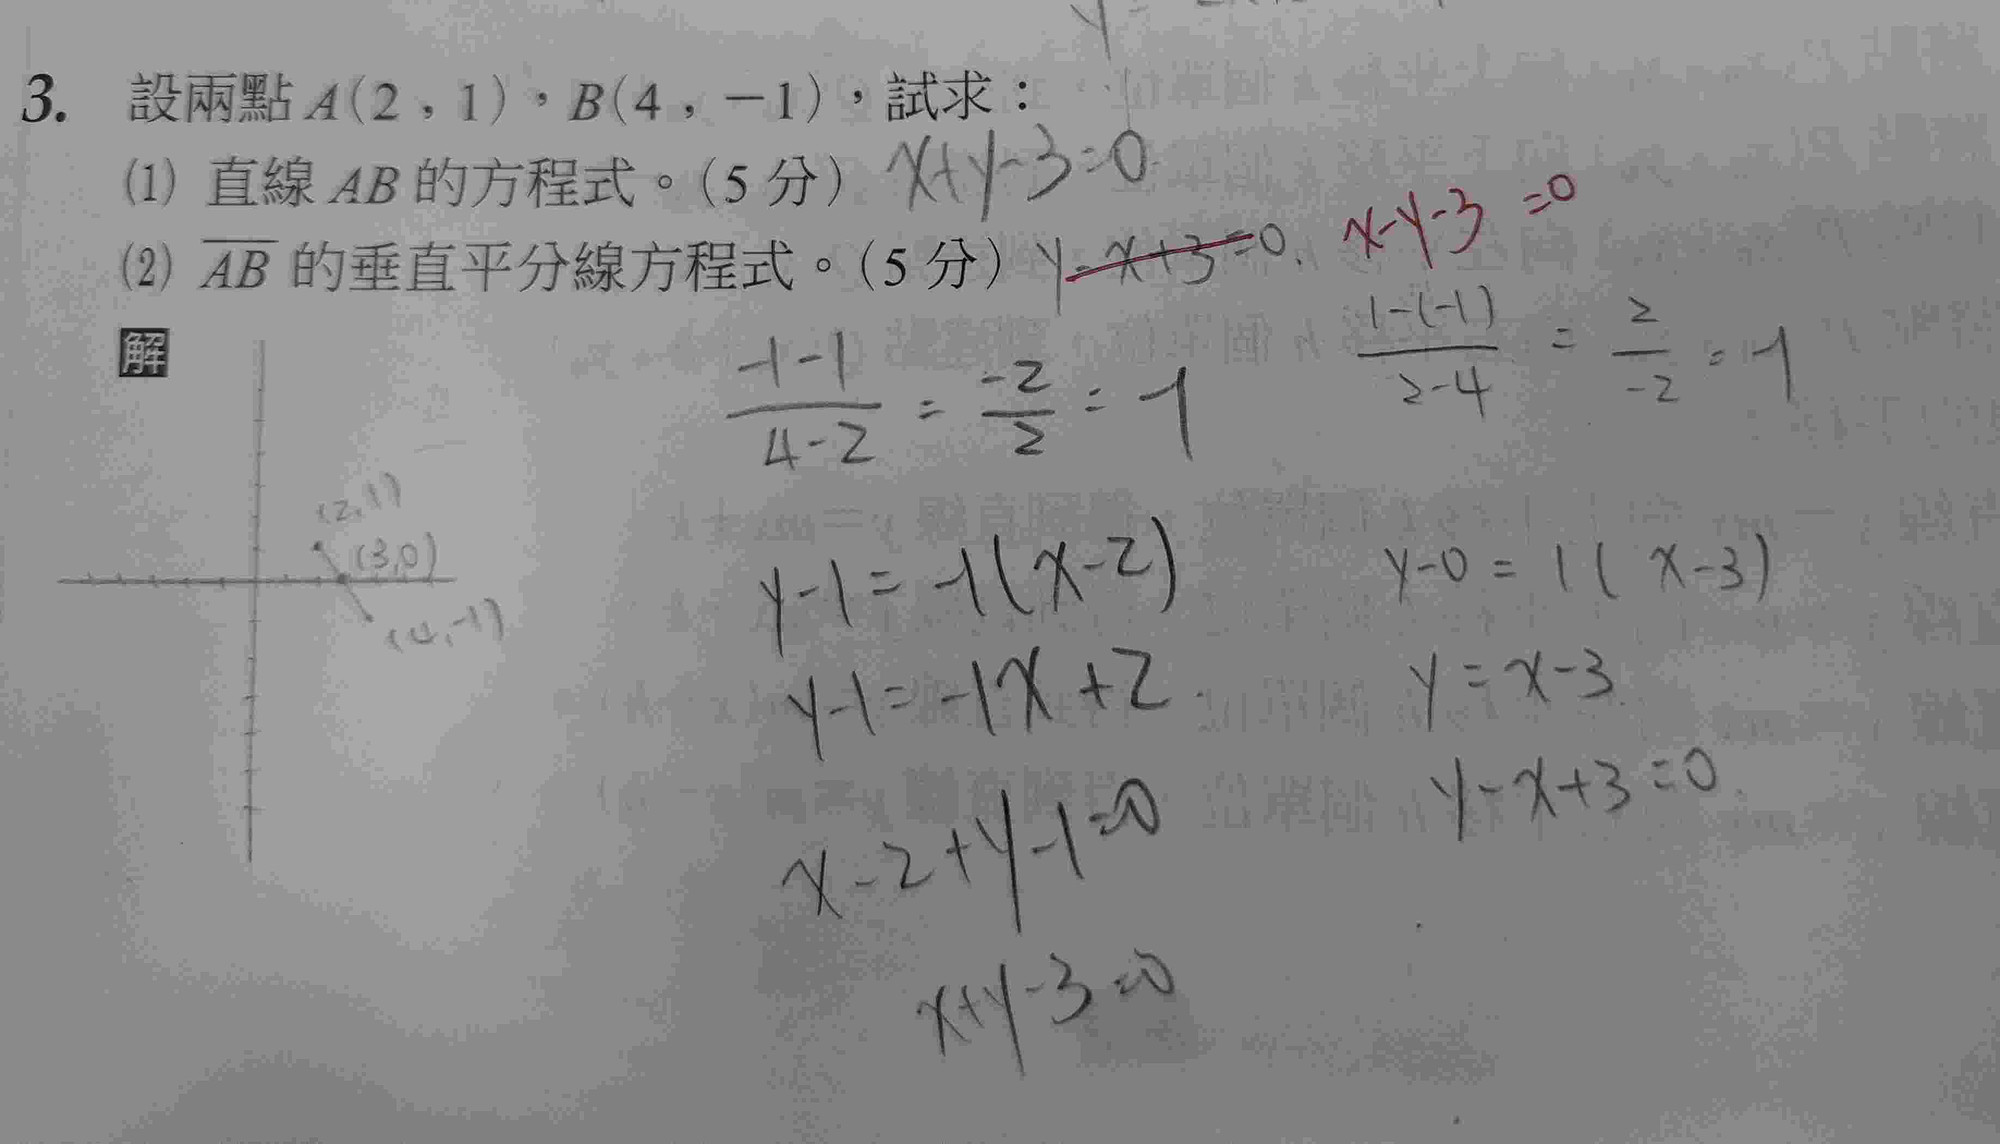 3. 設兩點 A(2，1)，B(4，－1)，試求：
(1) 直線 AB 的方程式。(5 分) x+y-3=0
(2) AB 的垂直平分線方程式。(5 分) y-x+3=0. x-y-3=0
解
-1-1/4-2 = -2/2 = -1
1-(-1)/2-4 = 2/-2 = -1
(2,1)
(3,0)
(4,-1)
y-1=-1(x-2)
y-1=-1x+2
x-2+y-1=0
x+y-3=0
y-0=1(x-3)
y=x-3
y-x+3=0